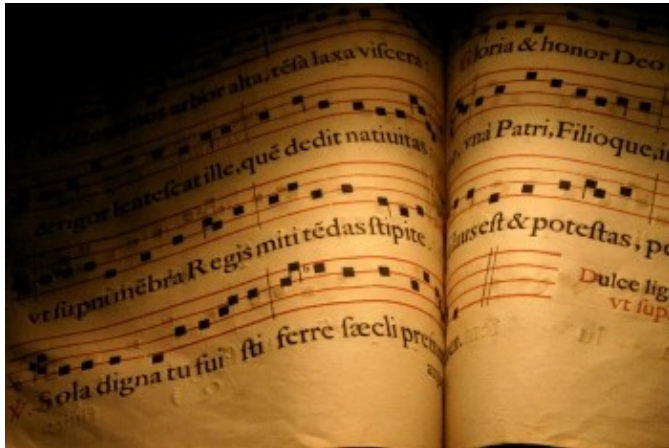 ramos arbor alta, tẽsà laxa viſcera:
rigor lenteſcat ille, quẽ dedit natiuitas.
vt ſup nũ mẽbra Regis miti tẽdas ſtipite.
℣. Sola digna tu fui ſti ferre ſæcli
Gloria & honor Deo
vnà Patri, Filioque,
eſt & poteſtas,
Dulce lig
vt ſup